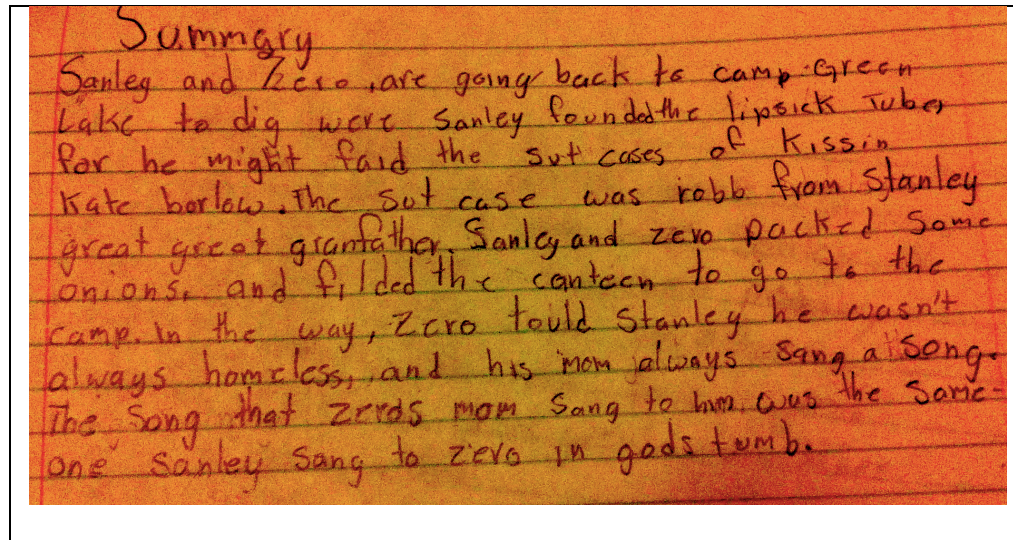 Summary
Sanley and Zero, are going back to camp Green
Lake to dig were Sanley founded the lipsick Tube,
for he might faid the sut cases of Kissin
Kate borlow. The Sut case was robb from Stanley
great great granfather. Sanley and zero packed Some
onions, and filded the canteen to go to the
camp. In the way, Zero tould Stanley he wasn't
always homeless, and his mom always sang a Song.
The Song that zeros mom Sang to him, was the Same-
one Sanley Sang to zero in gods tumb.